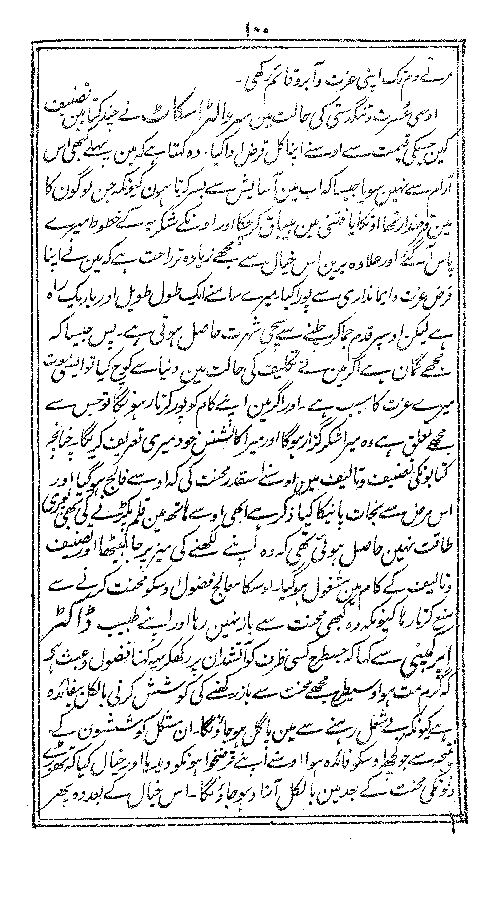 ۱۰۰
مرتے دم تک اپنی عزت و آبرو قائم رکھی۔
اوسی عسرت و تنگدستی کی حالت مین سر والٹر اسکاٹ نے چند کتابین تصنیف
کین جسکی قیمت سے اوسنے اپنا کل قرض ادا کیا۔ وہ کہتا ہے کہ مین پہلے کبھی اس
آرام سے نہین سویا جیسا کہ اب مین آسایش سے بسر کرتا ہون کیونکہ جن لوگون کا
مین قرضدار تھا اونکا پائی پائی مین بیباق کرچکا اور اونکے شکریہ کے خطوط میرے
پاس آ گئے اور علاوہ برین اس خیال سے مجھے زیادہ تر راحت ہے کہ مین نے اپنا
فرض عزت و ایمانداری سے پورا کیا۔ میرے سامنے ایک طول طویل اور باریک راہ
ہے لیکن اوسپر قدم جماکر چلنے سے سچی شہرت حاصل ہوتی ہے۔ پس جیسا کہ
مجھے گمان ہے اگر مین نے تکلیف کی حالت مین دنیا سے کوچ کیا تو ایسی موت
میرے عزت کا سبب ہے۔ اور اگر مین اپنے کام کو پورا کرتا رہونگا تو جس سے
مجھے تعلق ہے وہ میرا شکرگزار ہوگا اور میرا کانشنس خود میری تعریف کریگا۔ چنانچہ
کتابونکی تصنیف و تالیف مین اوسنے اسقدر محنت کی کہ اوسے فالج ہوگیا اور
اس مرض سے نجات پانیکا کیا ذکر ہے ابھی اوسے ہاتھ مین قلم پکڑنے کی بھی پوری
طاقت نہین حاصل ہوئی تھی کہ وہ اپنے لکھنے کی میز پر جا بیٹھا اور تصنیف
و تالیف کے کام مین مشغول ہوگیا۔ اوسکا معالج فضول اوسکو محنت کرنے سے
منع کرتا رہا کیونکہ وہ کبھی محنت سے باز نہین رہا اور اپنے طبیب ڈاکٹر
سے کہا کہ جسطرح کسی ظرف کو آتشدان پر رکھکر یہ کہنا فضول و عبث ہے
کہ گرم مت ہو اوسیطرح مجھے محنت سے باز رکھنے کی کوشش کرنی بالکل بیفائدہ
ہے کیونکہ بے شغل رہنے سے مین پاگل ہوجاؤنگا۔ ان مشکل کوششون کے
نتیجہ سے جو کچھ اوسکو فائدہ ہوا اوسنے اپنے قرضخواہونکو دیدیا اور خیال کیا کہ تھوڑے
دنونکی محنت کے بعد مین بالکل آزاد ہوجاؤنگا۔ اس خیال کے بعد وہ پھر